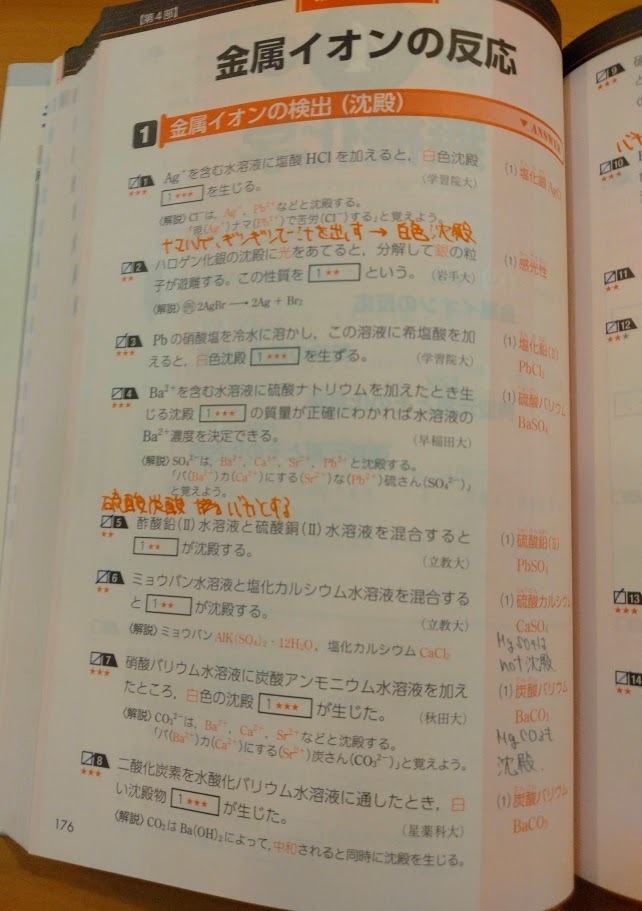 [第4部]
金属イオンの反応
1 金属イオンの検出(沈殿)
▼ANSWER
1 Ag⁺を含む水溶液に塩酸HClを加えると,白色沈殿
★★★ 1★★★ を生じる。 (学習院大)
〈解説〉Cl⁻は,Ag⁺,Pb²⁺などと沈殿する。
「現(Ag⁺)ナマ(Pb²⁺)で苦労(Cl⁻)する」と覚えよう。
(1) 塩化銀 AgCl
→ 白色沈殿
2 ハロゲン化銀の沈殿に光をあてると,分解して銀の粒
★★ 子が遊離する。この性質を 1★★ という。 (岩手大)
〈解説〉例 2AgBr → 2Ag + Br₂
(1) 感光性
3 Pbの硝酸塩を冷水に溶かし,この溶液に希塩酸を加
★★★ えると,白色沈殿 1★★★ を生ずる。 (学習院大)
(1) 塩化鉛(Ⅱ)
PbCl₂
4 Ba²⁺を含む水溶液に硫酸ナトリウムを加えたとき生
★★★ じる沈殿 1★★★ の質量が正確にわかれば水溶液の
Ba²⁺濃度を決定できる。 (早稲田大)
〈解説〉SO₄²⁻は,Ba²⁺,Ca²⁺,Sr²⁺,Pb²⁺と沈殿する。
「バ(Ba²⁺)カ(Ca²⁺)にする(Sr²⁺)な(Pb²⁺)硫さん(SO₄²⁻)」
と覚えよう。
(1) 硫酸バリウム
BaSO₄
硫酸炭酸 バカとする
5 酢酸鉛(Ⅱ)水溶液と硫酸銅(Ⅱ)水溶液を混合すると
★★ 1★★ が沈殿する。 (立教大)
(1) 硫酸鉛(Ⅱ)
PbSO₄
6 ミョウバン水溶液と塩化カルシウム水溶液を混合する
★★ と 1★★ が沈殿する。 (立教大)
〈解説〉ミョウバン AlK(SO₄)₂・12H₂O,塩化カルシウム CaCl₂
(1) 硫酸カルシウム
CaSO₄
MgSO₄は
not 沈殿
7 硝酸バリウム水溶液に炭酸アンモニウム水溶液を加え
★★★ たところ,白色の沈殿 1★★★ が生じた。 (秋田大)
〈解説〉CO₃²⁻は,Ba²⁺,Ca²⁺,Sr²⁺などと沈殿する。
「バ(Ba²⁺)カ(Ca²⁺)にする(Sr²⁺)炭さん(CO₃²⁻)」と覚えよう。
(1) 炭酸バリウム
BaCO₃
MgCO₃も
沈殿.
8 二酸化炭素を水酸化バリウム水溶液に通したとき,白
★★★ い沈殿物 1★★★ が生じた。 (星薬科大)
〈解説〉CO₂はBa(OH)₂によって,中和されると同時に沈殿を生じる。
(1) 炭酸バリウム
BaCO₃
176
9
★★★
10
★★★
11
★★
12
★★★
13
★★★
14
★★